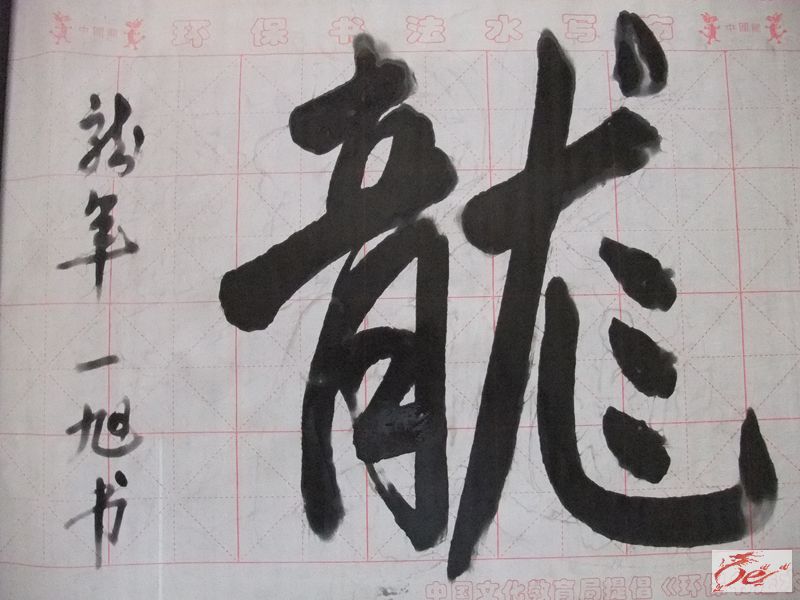 中国龙 环保书法水写布 中国龙
龍
龙年一旭书
中国文化教育局提倡《环保